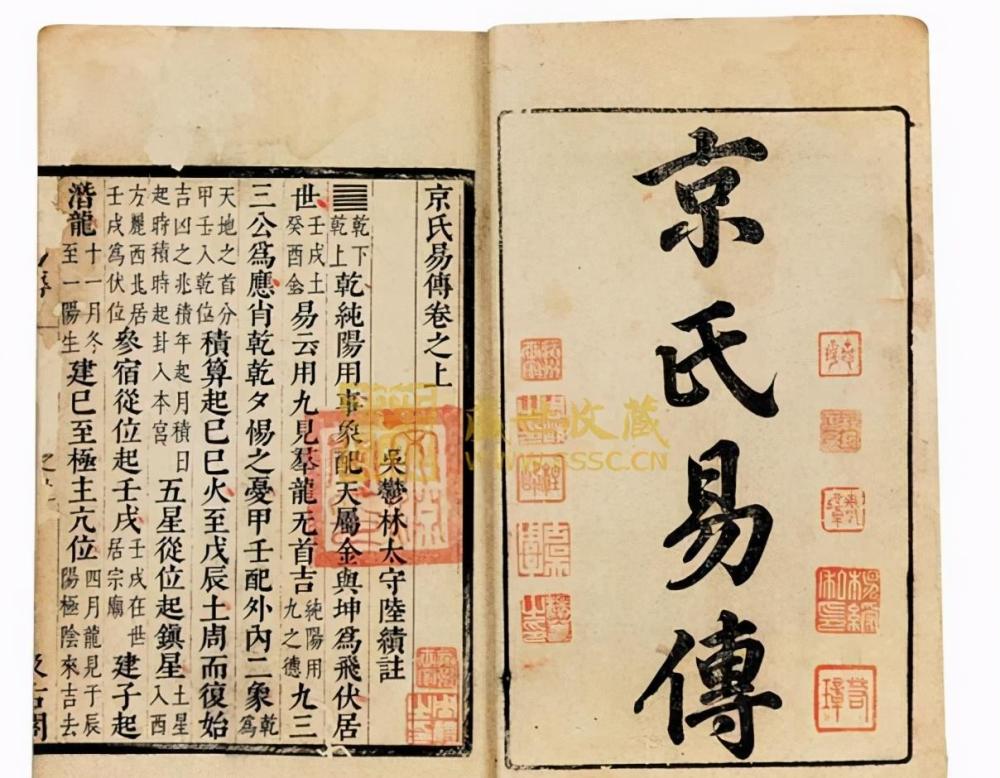 京氏易傳
京氏易傳卷之上
吳鬱林太守陸績註
䷀乾下乾上乾純陽用事象配天屬金與坤爲飛伏居
世壬戌土癸酉金易云用九見羣龍无首吉純陽用九之德九三
三公爲應肖乾乾夕惕之憂甲壬配外內二象乾爲
天地之首分甲壬入乾位積算起巳巳火至戊辰土周而復始
吉凶之兆積年起月積日起時積時起卦入本宮五星從位起鎮星土星入西
方麗西北居壬戌爲伏位參宿從位起壬戌壬戌在世居宗廟建子起
潛龍十一月冬至一陽生建巳至極主亢位四月龍見于辰陽極陰來吉去
盛世收藏
WWW.SSSC.CN